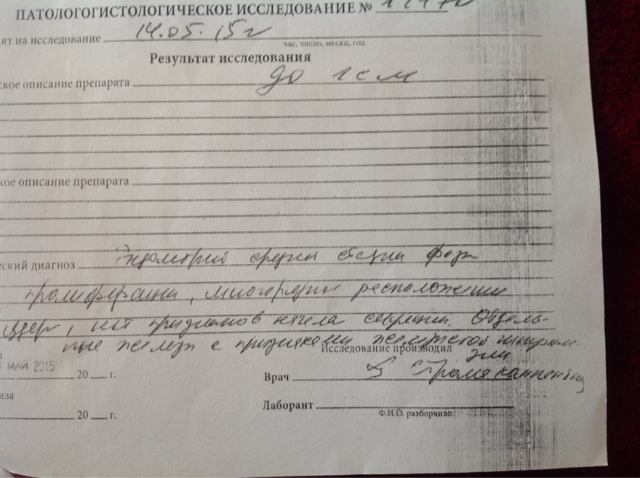 ПАТОЛОГОГИСТОЛОГИЧЕСКОЕ ИССЛЕДОВАНИЕ №
ят на исследование 14.05.15г
час, число, месяц, год
Результат исследования
ское описание препарата до 1 см
кое описание препарата
еский диагноз Эндометрий средней стадии фазы
пролиферации, многорядное расположение
ядер, нет признаков начала секреции. Отдель-
ные железы с признаками железистой
МАЙ 2015
Исследование производил
20 г.
Врач
Строма
иза
20 г.
Лаборант
Ф.И.О. разборчиво